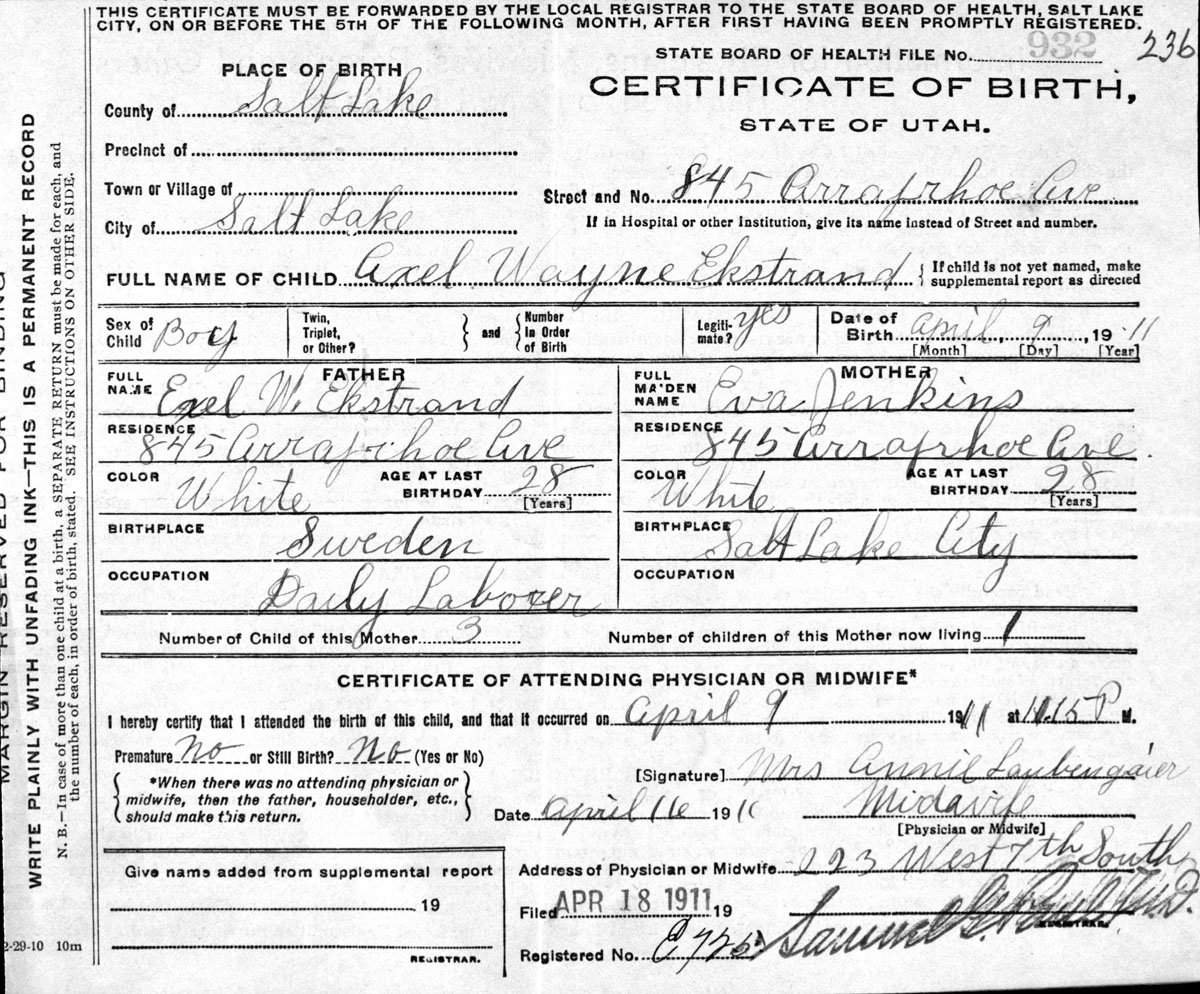 THIS CERTIFICATE MUST BE FORWARDED BY THE LOCAL REGISTRAR TO THE STATE BOARD OF HEALTH, SALT LAKE
CITY, ON OR BEFORE THE 5TH OF THE FOLLOWING MONTH, AFTER FIRST HAVING BEEN PROMPTLY REGISTERED.
STATE BOARD OF HEALTH FILE No. 932 236
CERTIFICATE OF BIRTH,
STATE OF UTAH.
PLACE OF BIRTH
County of Salt Lake
Precinct of
Town or Village of
City of Salt Lake
Street and No. 845 Arraprhoe Ave
If in Hospital or other Institution, give its name instead of Street and number.
FULL NAME OF CHILD Axel Wayne Ekstrand
If child is not yet named, make
supplemental report as directed
Sex of
Child Boy
Twin,
Triplet,
or Other?
and
Number
in Order
of Birth
Legiti-
mate? yes
Date of
Birth April 9 1911
[Month] [Day] [Year]
FATHER
FULL
NAME Exel W. Ekstrand
RESIDENCE
845 Arraprhoe Ave
COLOR White
AGE AT LAST
BIRTHDAY 28
[Years]
BIRTHPLACE
Sweden
OCCUPATION
Daily Laborer
MOTHER
FULL
MAIDEN
NAME Eva Jenkins
RESIDENCE
845 Arraprhoe Ave.
COLOR White
AGE AT LAST
BIRTHDAY 28
[Years]
BIRTHPLACE
Salt Lake City
OCCUPATION
Number of Child of this Mother 3 Number of children of this Mother now living 1
CERTIFICATE OF ATTENDING PHYSICIAN OR MIDWIFE*
I hereby certify that I attended the birth of this child, and that it occurred on April 9 1911 at 11.15 P M.
Premature No or Still Birth? No (Yes or No)
*When there was no attending physician or
midwife, then the father, householder, etc.,
should make this return.
[Signature] Mrs Annie Laubengaier
Date April 16 191
Midwife
[Physician or Midwife]
Give name added from supplemental report
19
REGISTRAR.
Address of Physician or Midwife 223 West 7th South
Filed APR 18 1911 19
Samuel
REGISTRAR.
Registered No.
2-29-10 10m
MARGIN RESERVED FOR BINDING
WRITE PLAINLY WITH UNFADING INK—THIS IS A PERMANENT RECORD
N. B.—In case of more than one child at a birth, a SEPARATE RETURN must be made for each, and
the number of each, in order of birth, stated. SEE INSTRUCTIONS ON OTHER SIDE.